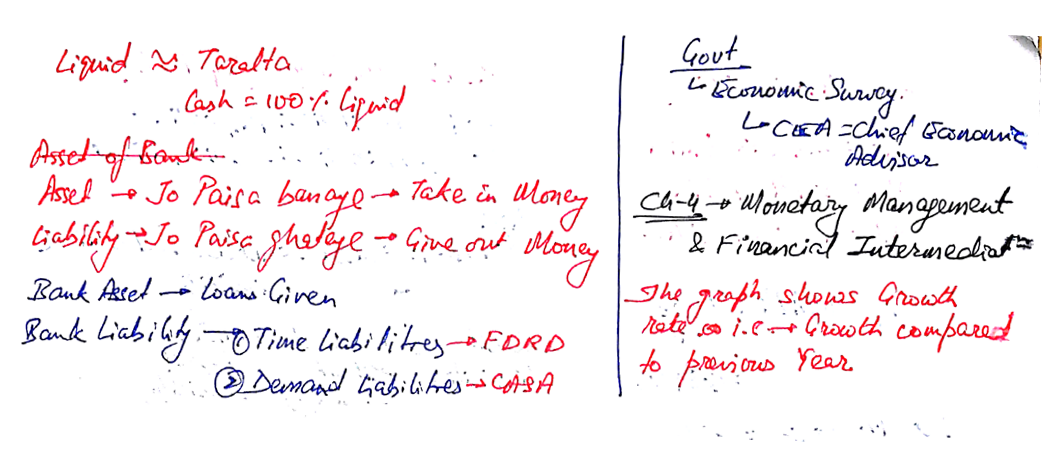 Liquid ≈ Taralta
Cash = 100% Liquid
Asset of Bank
Asset → Jo Paisa banaye → Take in Money
Liability → Jo Paisa ghateye → Give out Money
Bank Asset → Loans Given
Bank Liability → ① Time Liabilitres → FDRD
② Demand Liabilitres → CASA
Govt
↳ Economic Survey.
↳ CEA = Chief Economic
Advisor
Ch-4 → Monetary Management
& Financial Intermediat
The graph shows Growth
rate i.e → Growth compared
to previous Year